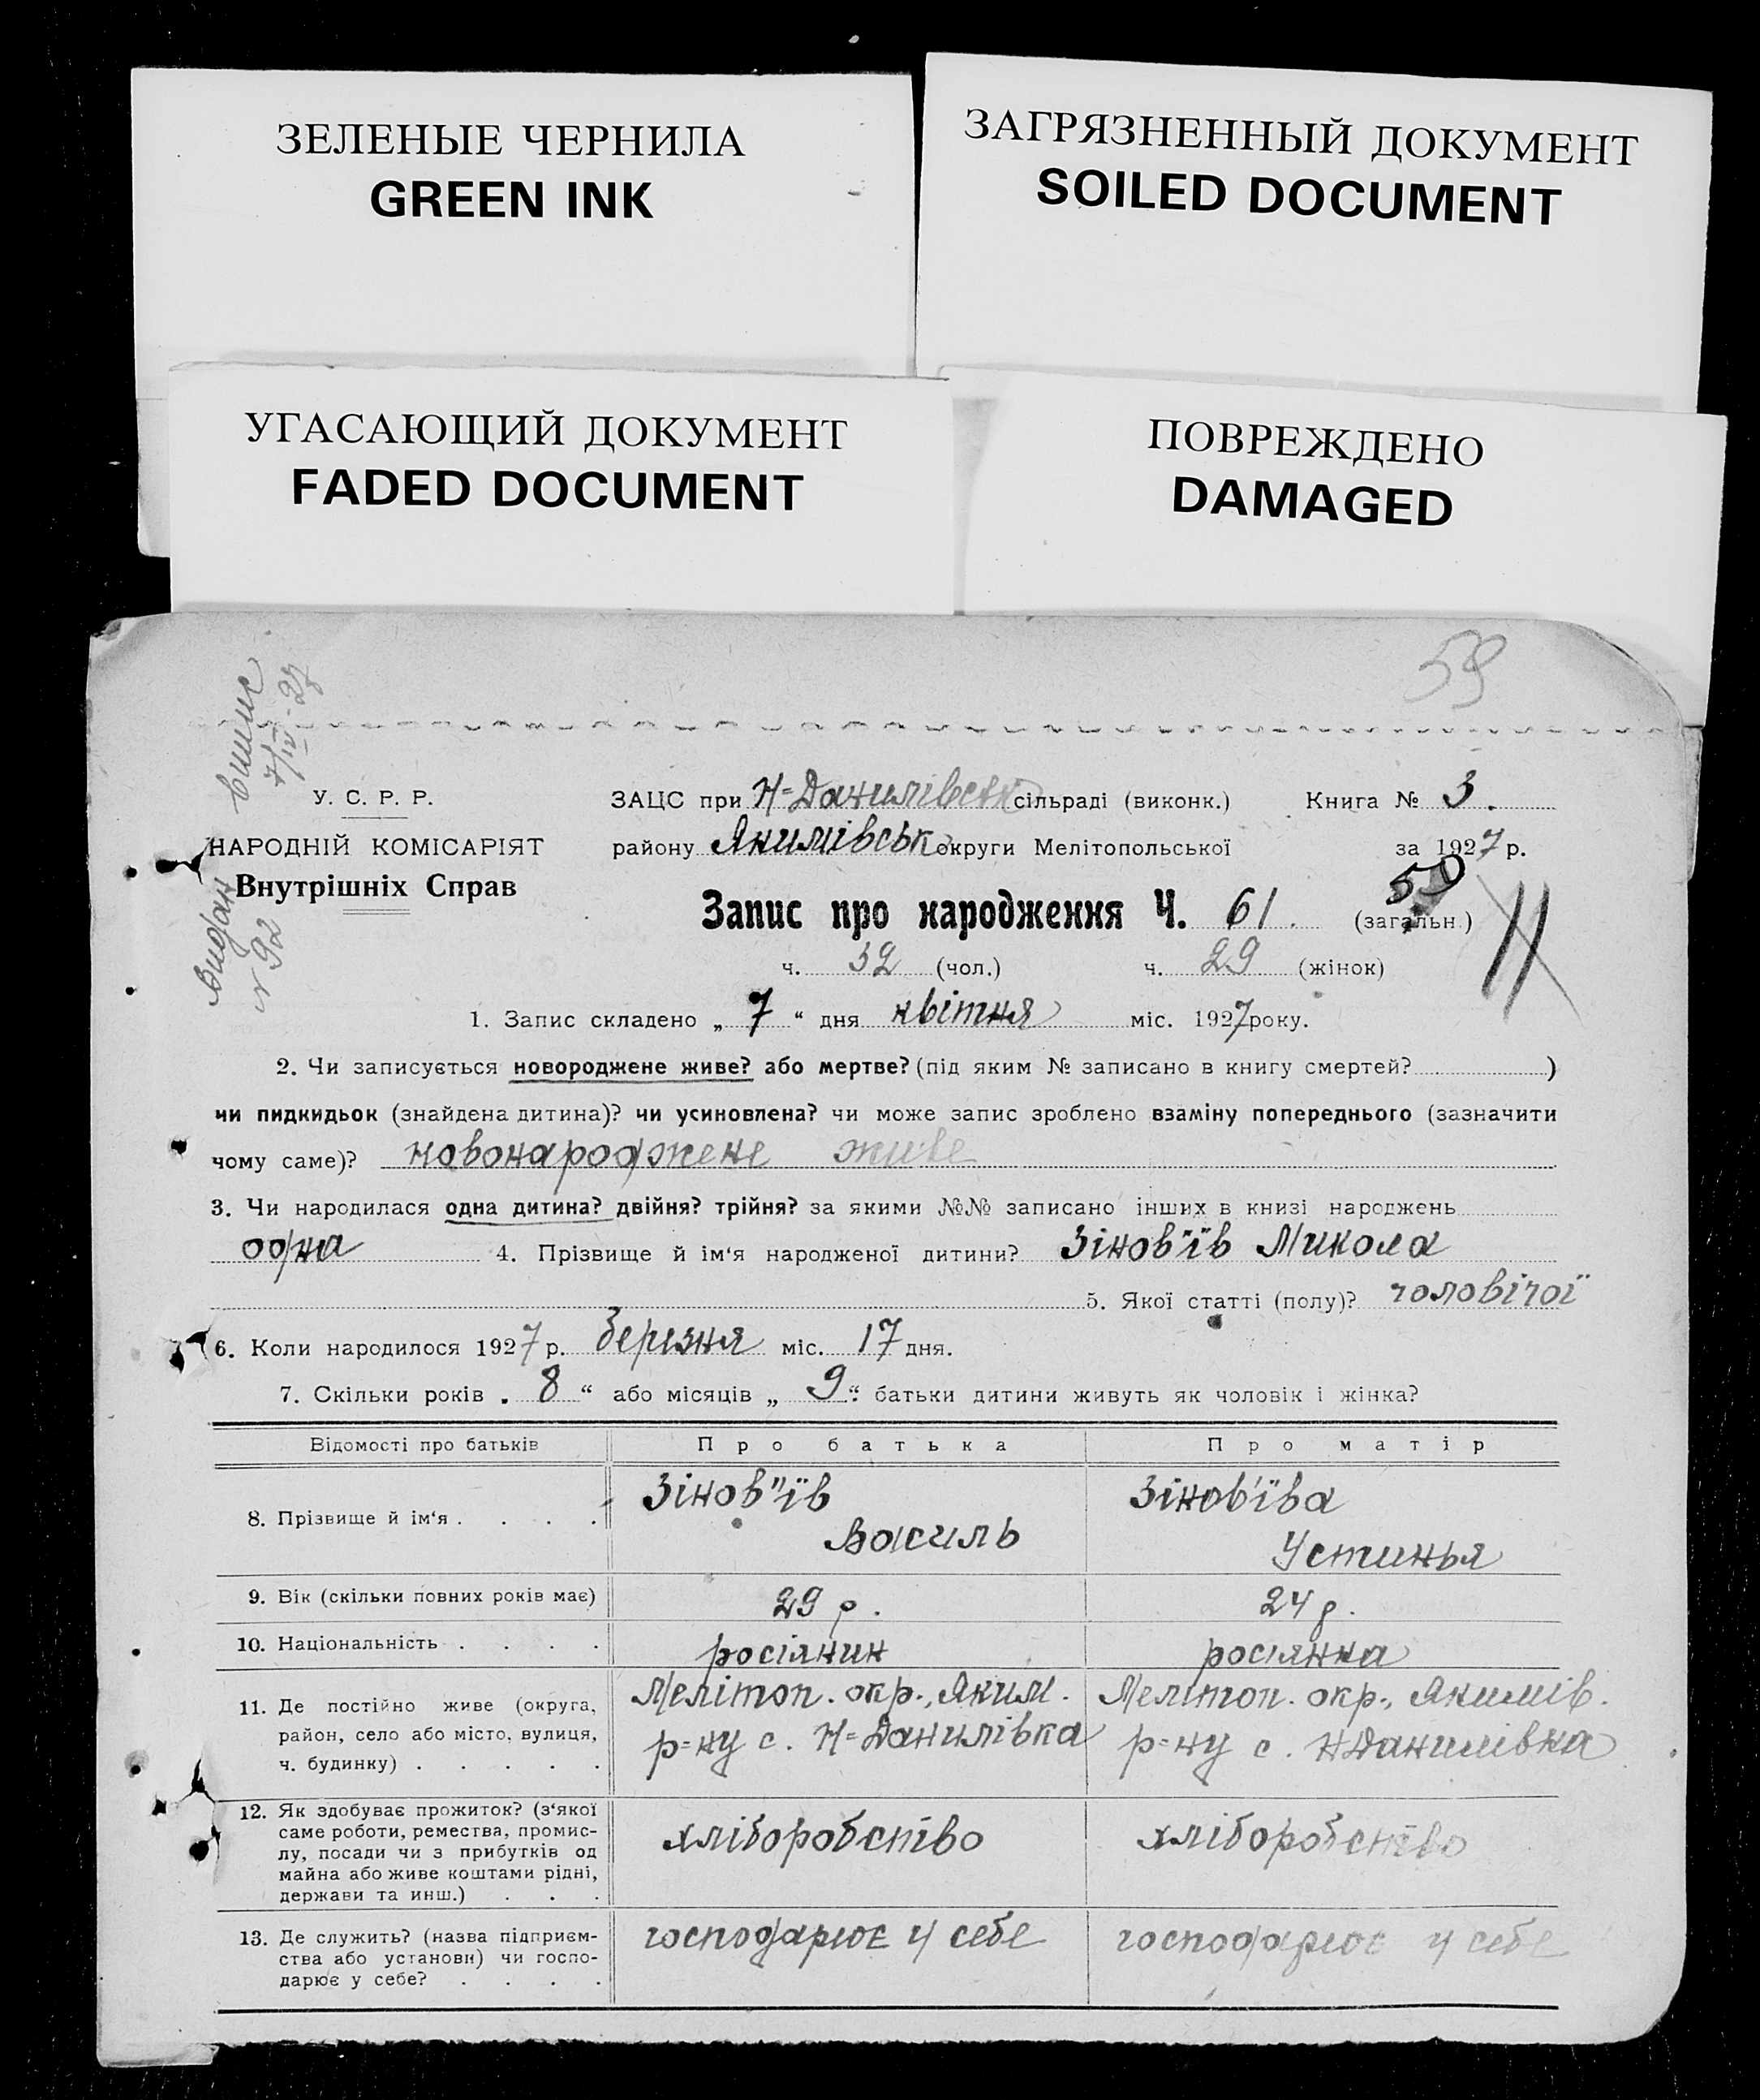 ЗЕЛЕНЫЕ ЧЕРНИЛА
GREEN INK
ЗАГРЯЗНЕННЫЙ ДОКУМЕНТ
SOILED DOCUMENT
УГАСАЮЩИЙ ДОКУМЕНТ
FADED DOCUMENT
ПОВРЕЖДЕНО
DAMAGED
59
виписّ
7/IV-27
У. С. Р. Р.
НАРОДНІЙ КОМІСАРІЯТ
Внутрішніх Справ
видан
№ 92
ЗАЦС при Н=Данилівськ сільраді (виконк.) Книга № 3.
району Якимівськ округи Мелітопольської за 1927 р.
59
Запис про народження Ч. 61. (загальн.)
ч. 32 (чол.) ч. 29 (жінок)
1. Запис складено „ 7 “ дня квітня міс. 1927 року.
2. Чи записується новороджене живе? або мертве? (під яким № записано в книгу смертей? )
чи пидкидьок (знайдена дитина)? чи усиновлена? чи може запис зроблено взаміну попереднього (зазначити
чому саме)? новонароджене живе
3. Чи народилася одна дитина? двійня? трійня? за якими №№ записано інших в книзі народжень
одна 4. Прізвище й ім‘я народженої дитини? Зінов'їв Микола
5. Якої статті (полу)? чоловічої
6. Коли народилося 1927 р. березня міс. 17 дня.
7. Скільки років „ 8 “ або місяців „ 9 “ батьки дитини живуть як чоловік і жінка?
Відомості про батьків Про батька Про матір
8. Прізвище й ім‘я . . . . Зінов"їв Василь Зінов'їва Устинья
9. Вік (скільки повних років має) 29 р. 24 р.
10. Національність . . . . росіянин росіянка
11. Де постійно живе (округа,
район, село або місто, вулиця,
ч. будинку) . . . . .
Мелітоп. окр., Яким.
р=ну с. Н=Данилівка
Мелітоп. окр., Якимів.
р=ну с. Н Данилівка
12. Як здобуває прожиток? (з‘якої
саме роботи, ремества, промис-
лу, посади чи з прибутків од
майна або живе коштами рідні,
держави та инш.) . . .
хліборобство хліборобство
13. Де служить? (назва підприєм-
ства або установи) чи госпо-
дарює у себе? . . . .
господарює у себе господарює у себе